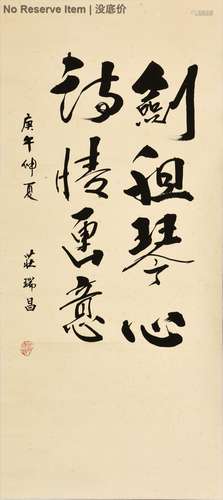 No Reserve Item | 没底价
劍胆琴心
詩情画意
庚午仲夏
莊瑞昌